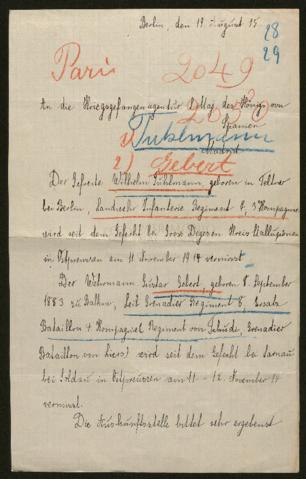 Berlin, den 19. August 15.
28
29
Paris
2049
An die Kriegsgefangenagentur des Königs von
Spanien
Madrid
1) Tuhlmann
2) Gebert
Der Gefreite Wilhelm Tuhlmann, geboren in Teltow
bei Berlin, Landwehr Infanterie Regiment 8, 3 Kompagnie
wird seit dem Gefecht bei Gross Degesen Kreis Stallupönen
in Ostpreussen am 11 November 1914 vermisst.
Der Wehrmann Gustav Gebert, geboren 8. September
1883 zu, Leib Grenadier Regiment 8 Ersatz
Bataillon 4 Kompagnie Regiment von, Grenadier
Bataillon von) wird seit dem Gefecht bei
bei Soldau in Ostpreussen am 11 - 12. November 14
vermisst.
Die Auskunftsstelle bittet sehr ergebenst